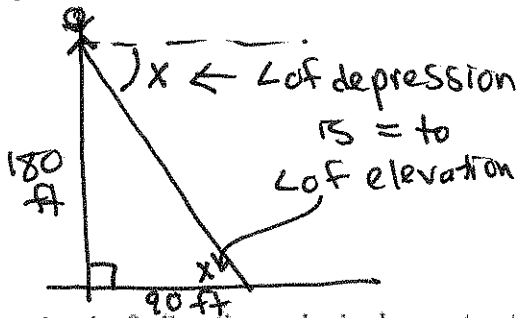 x ← ∠of depression
is = to
∠of elevation
180
ft
x
90 ft